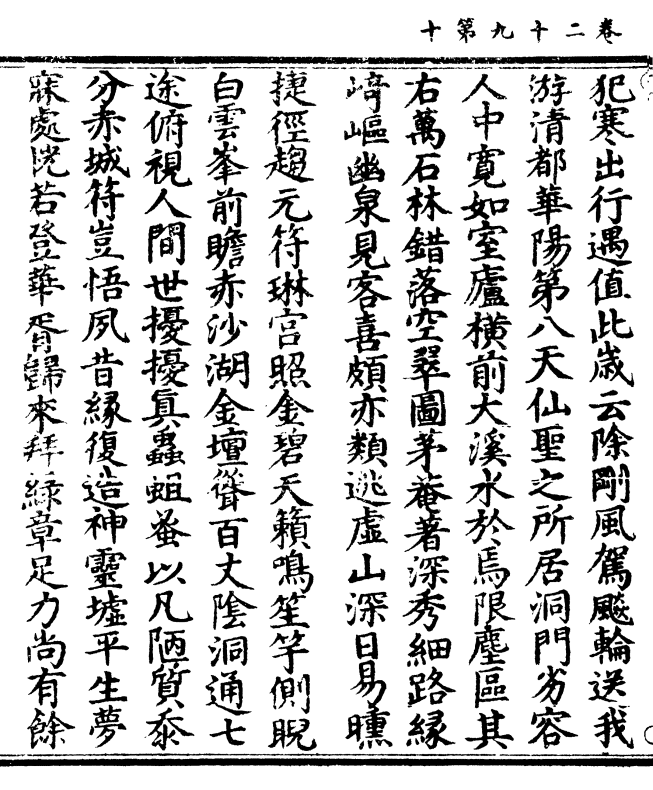 卷二十九第十
犯寒出行遇值此歲云除剛風駕飈輪送我
游清都華陽第八天仙聖之所居洞門劣容
人中寛如室廬橫前大溪水於焉限塵區其
右萬石林錯落空翠圖茅菴著深秀細路緣
﨑嶇幽泉見客喜頗亦類逃虛山深日易曛
捷徑趨元符琳宫照金碧天籟鳴笙竽側睨
白雲峯前瞻赤沙湖金壇聳百丈陰洞通七
途俯視人間世擾擾真蟲蛆蚤以凡陋質忝
分赤城符豈悟夙昔緣復造神靈墟平生夢
寐處恍若登華胥歸來拜緑章足力尚有餘